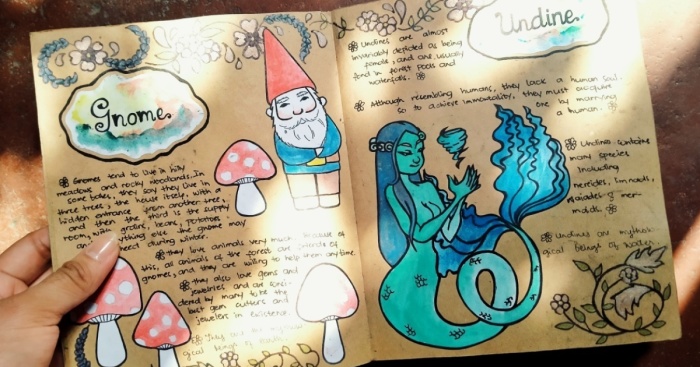 Gnome
❀ Gnomes tend to live in hilly
meadows and rocky woodlands. In
some tales, they say they live in
three trees, the house itself, with a
hidden entrance from another tree,
and then the third is the supply
room with grains, beans, potatoes
and anything else the gnome may
need during winter.
❀ they love animals very much. because of
this, all animals of the forest are friends of
gnomes, and they are willing to help them anytime.
❀ they also love gems and
jewelries and are consi-
dered by many to be the
best gem cutters and
jewelers in existence.
❀ They are the
gical beings of
Undine
❀ Undines are almost
invariably depicted as being
female, and are usually
fond in forest pools and
waterfalls. ❀
❀ Although resembling humans, they lack a human soul.
so to achieve immortality, they must acquire
one by marrying
a human. ❀
❀ Undines contains
many species
including
nereides, limnads,
naiades & mer-
maids. ❀
❀ Undines are mytholo-
gical beings of water.